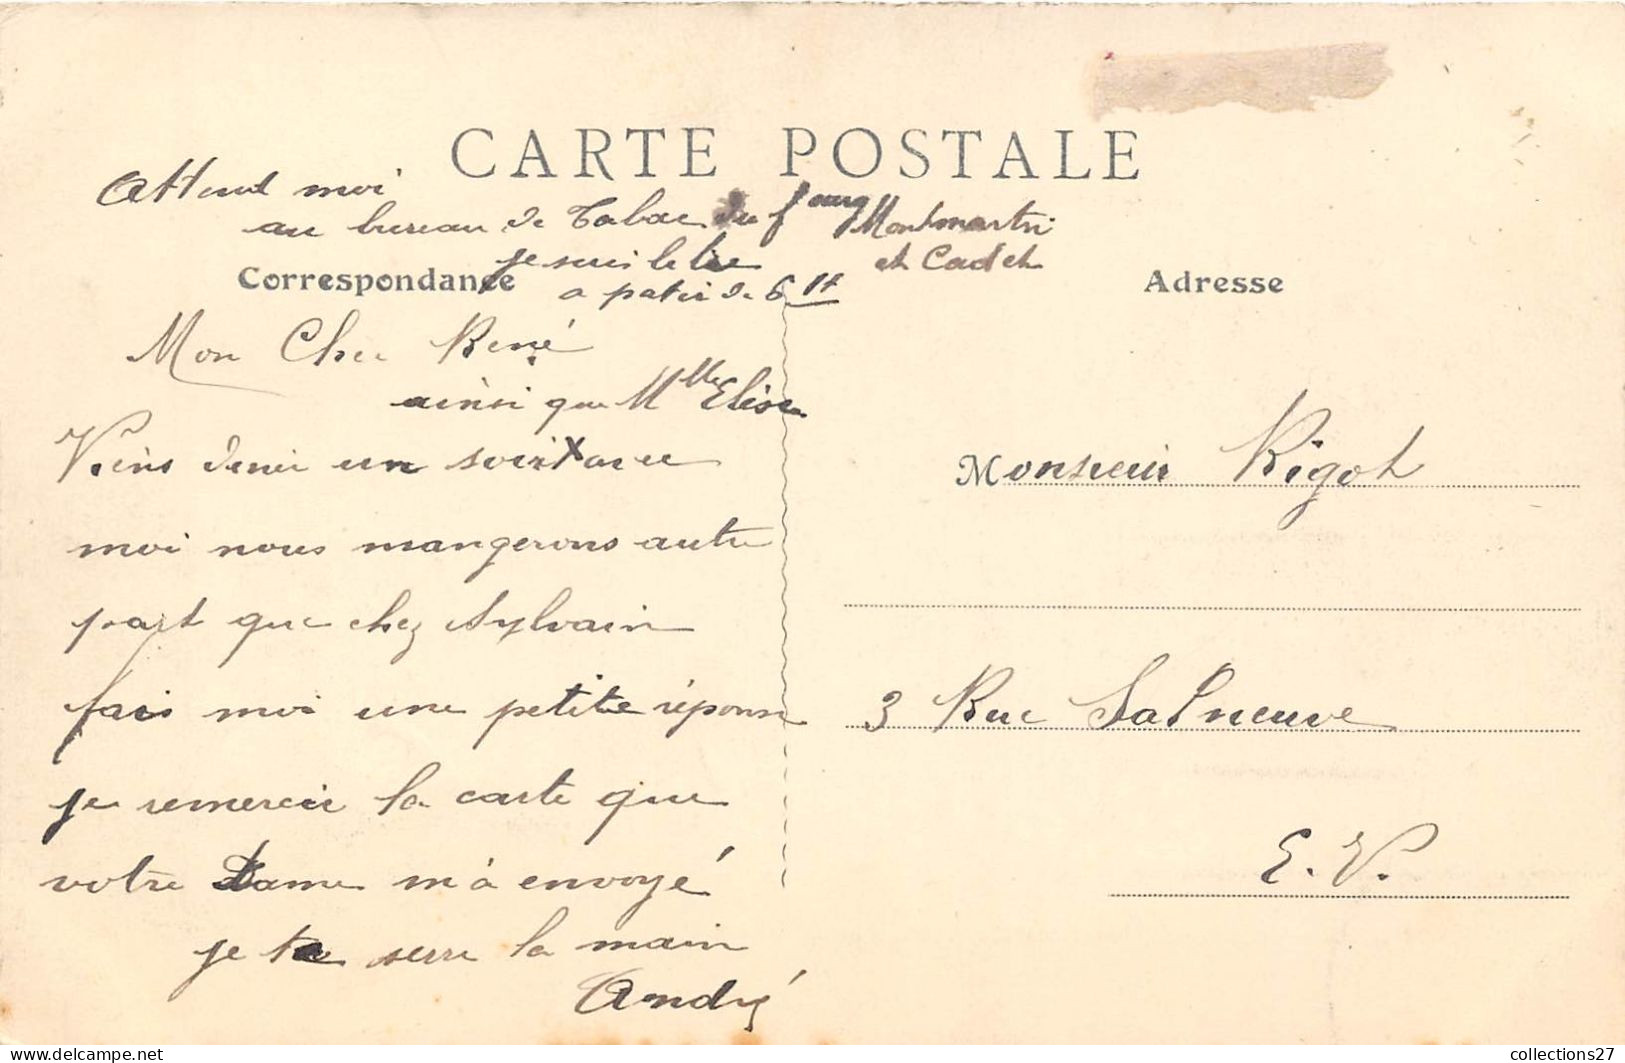 CARTE POSTALE
Attend moi
au bureau de Tabac du fourg Montmartre
et Cadet
je suis le
a patir de 6 H
Correspondance
Adresse
Mon Cher René
ainsi que Mlle Elise
Viens diner un soir X avec
moi nous mangerons autre
part que chez Sylvain
fais moi une petite réponse
je remercie la carte que
votre Dame m'a envoyé
je te serre la main
André
Monsieur Rigot
3 Rue Salneuve
E. V.
collections27